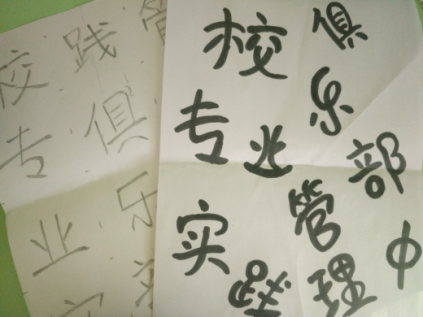 校 践 管
专 俱
业 乐
校 俱
专 业 乐
部
实 管
践 理 中